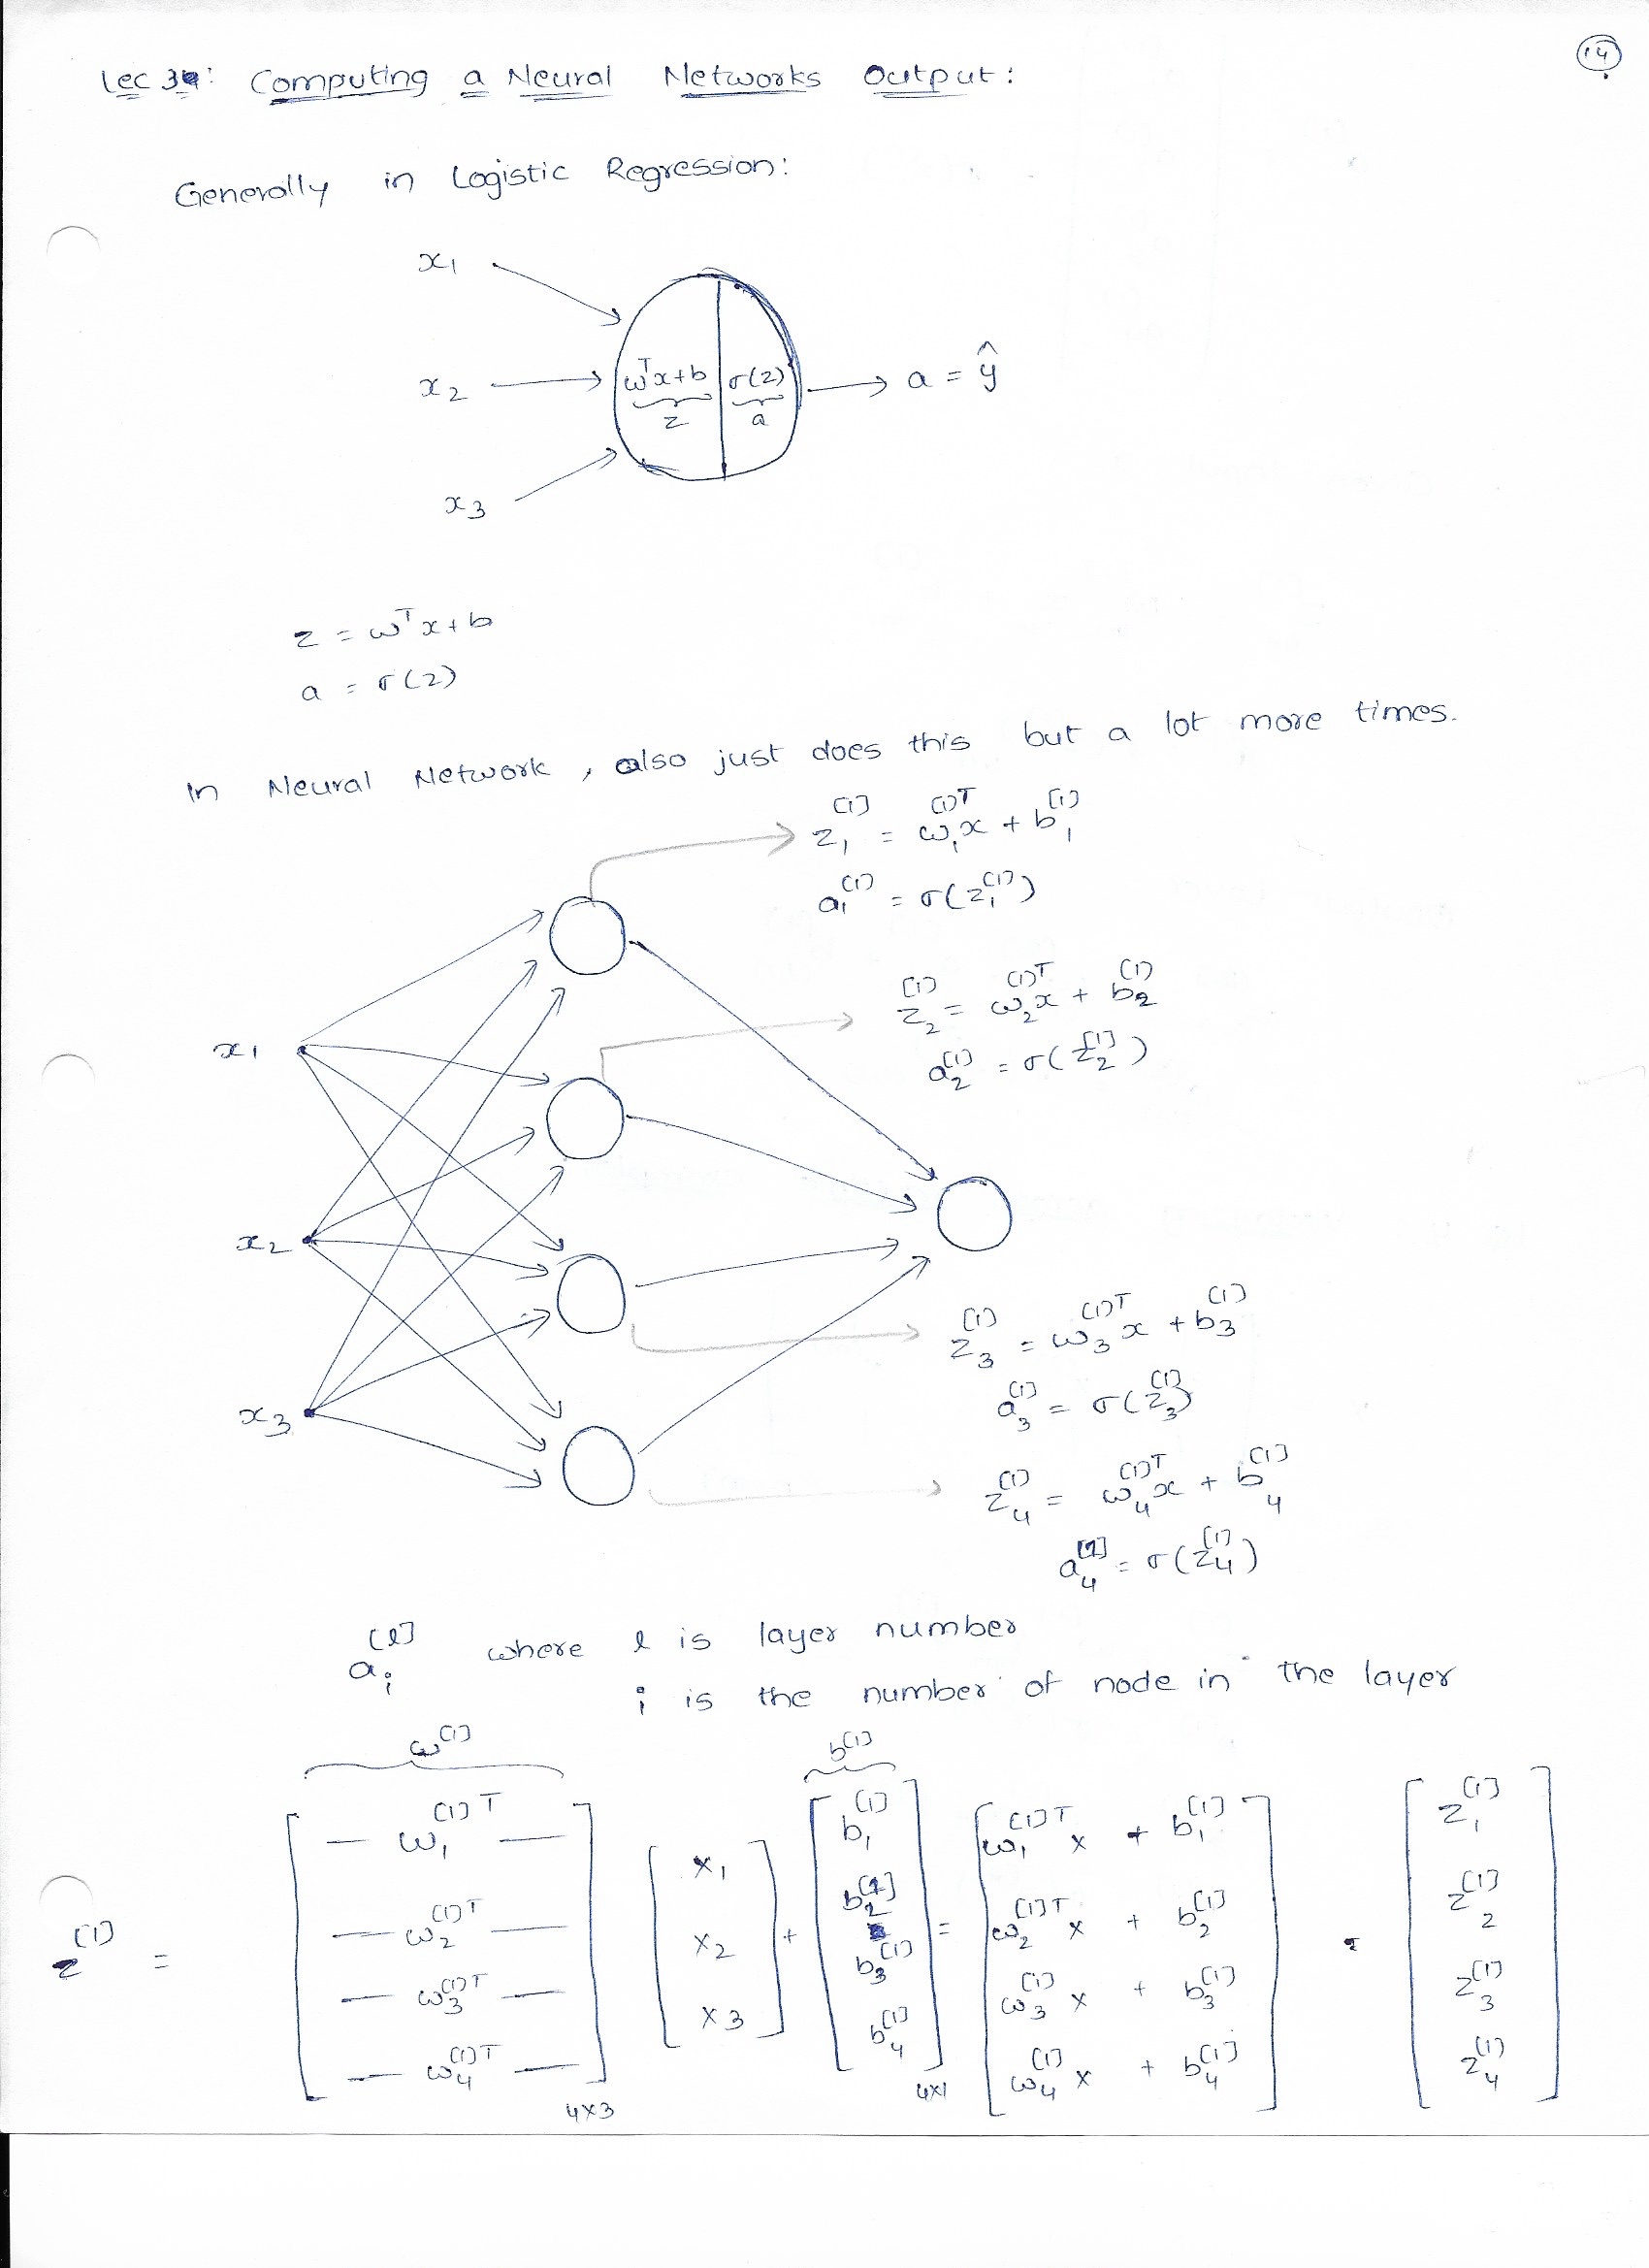 14
Lec 3: Computing a Neural Networks Output:
Generally in Logistic Regression:
x₁
x₂ wᵀx+b σ(z) → a = ŷ
z a
x₃
z = wᵀx+b
a = σ(z)
In Neural Network, also just does this but a lot more times.
z₁^[1] = w₁^[1]ᵀ x + b₁^[1]
a₁^[1] = σ(z₁^[1])
z₂^[1] = w₂^[1]ᵀ x + b₂^[1]
x₁
a₂^[1] = σ(z₂^[1])
x₂
z₃^[1] = w₃^[1]ᵀ x + b₃^[1]
a₃^[1] = σ(z₃^[1])
x₃
z₄^[1] = w₄^[1]ᵀ x + b₄^[1]
a₄^[1] = σ(z₄^[1])
aᵢ^[l] where l is layer number
i is the number of node in the layer
w^[1] b^[1]
— w₁^[1]ᵀ — x₁ b₁^[1] w₁^[1]ᵀ x + b₁^[1] z₁^[1]
— w₂^[1]ᵀ — b₂^[1] w₂^[1]ᵀ x + b₂^[1] z₂^[1]
z^[1] = x₂ + = =
— w₃^[1]ᵀ — b₃^[1] w₃^[1] x + b₃^[1] z₃^[1]
— w₄^[1]ᵀ — x₃ b₄^[1] w₄^[1] x + b₄^[1] z₄^[1]
4×3 4×1